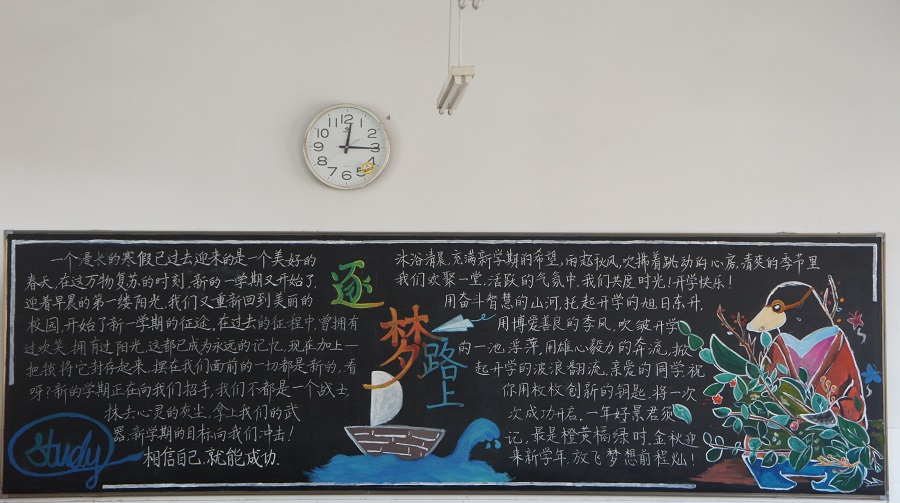 12
1
2
3
4
5
6
7
8
9
10
11
一个漫长的寒假已过去迎来的是一个美好的
春天,在这万物复苏的时刻,新的一学期又开始了,
迎着早晨的第一缕阳光,我们又重新回到美丽的
校园,开始了新一学期的征途,在过去的征程中,曾拥有
过欢笑,拥有过阳光,这都已成为永远的记忆,现在加上一
把锁将它封存起来,摆在我们面前的一切都是新的,看
呀?新的学期正在向我们招手,我们不都是一个战士,
抹去心灵的灰尘,拿上我们的武
器,新学期的目标向我们冲击!
相信自己,就能成功.
Study
逐
梦
路
上
沐浴清晨,充满新学期的希望,雨起秋风,吹拂着跳动的心房,清爽的季节里
我们欢聚一堂,活跃的气氛中,我们共度时光!开学快乐!
用奋斗智慧的山河,托起开学的旭日东升,
用博爱善良的季风,吹皱开学
的一池浮萍,用雄心毅力的奔流,掀
起开学的波浪翻流,亲爱的同学祝
你用枚枚创新的钥匙,将一次
次成功开启,一年好景君须
记,最是橙黄橘绿时,金秋迎
来新学年,放飞梦想前程灿!